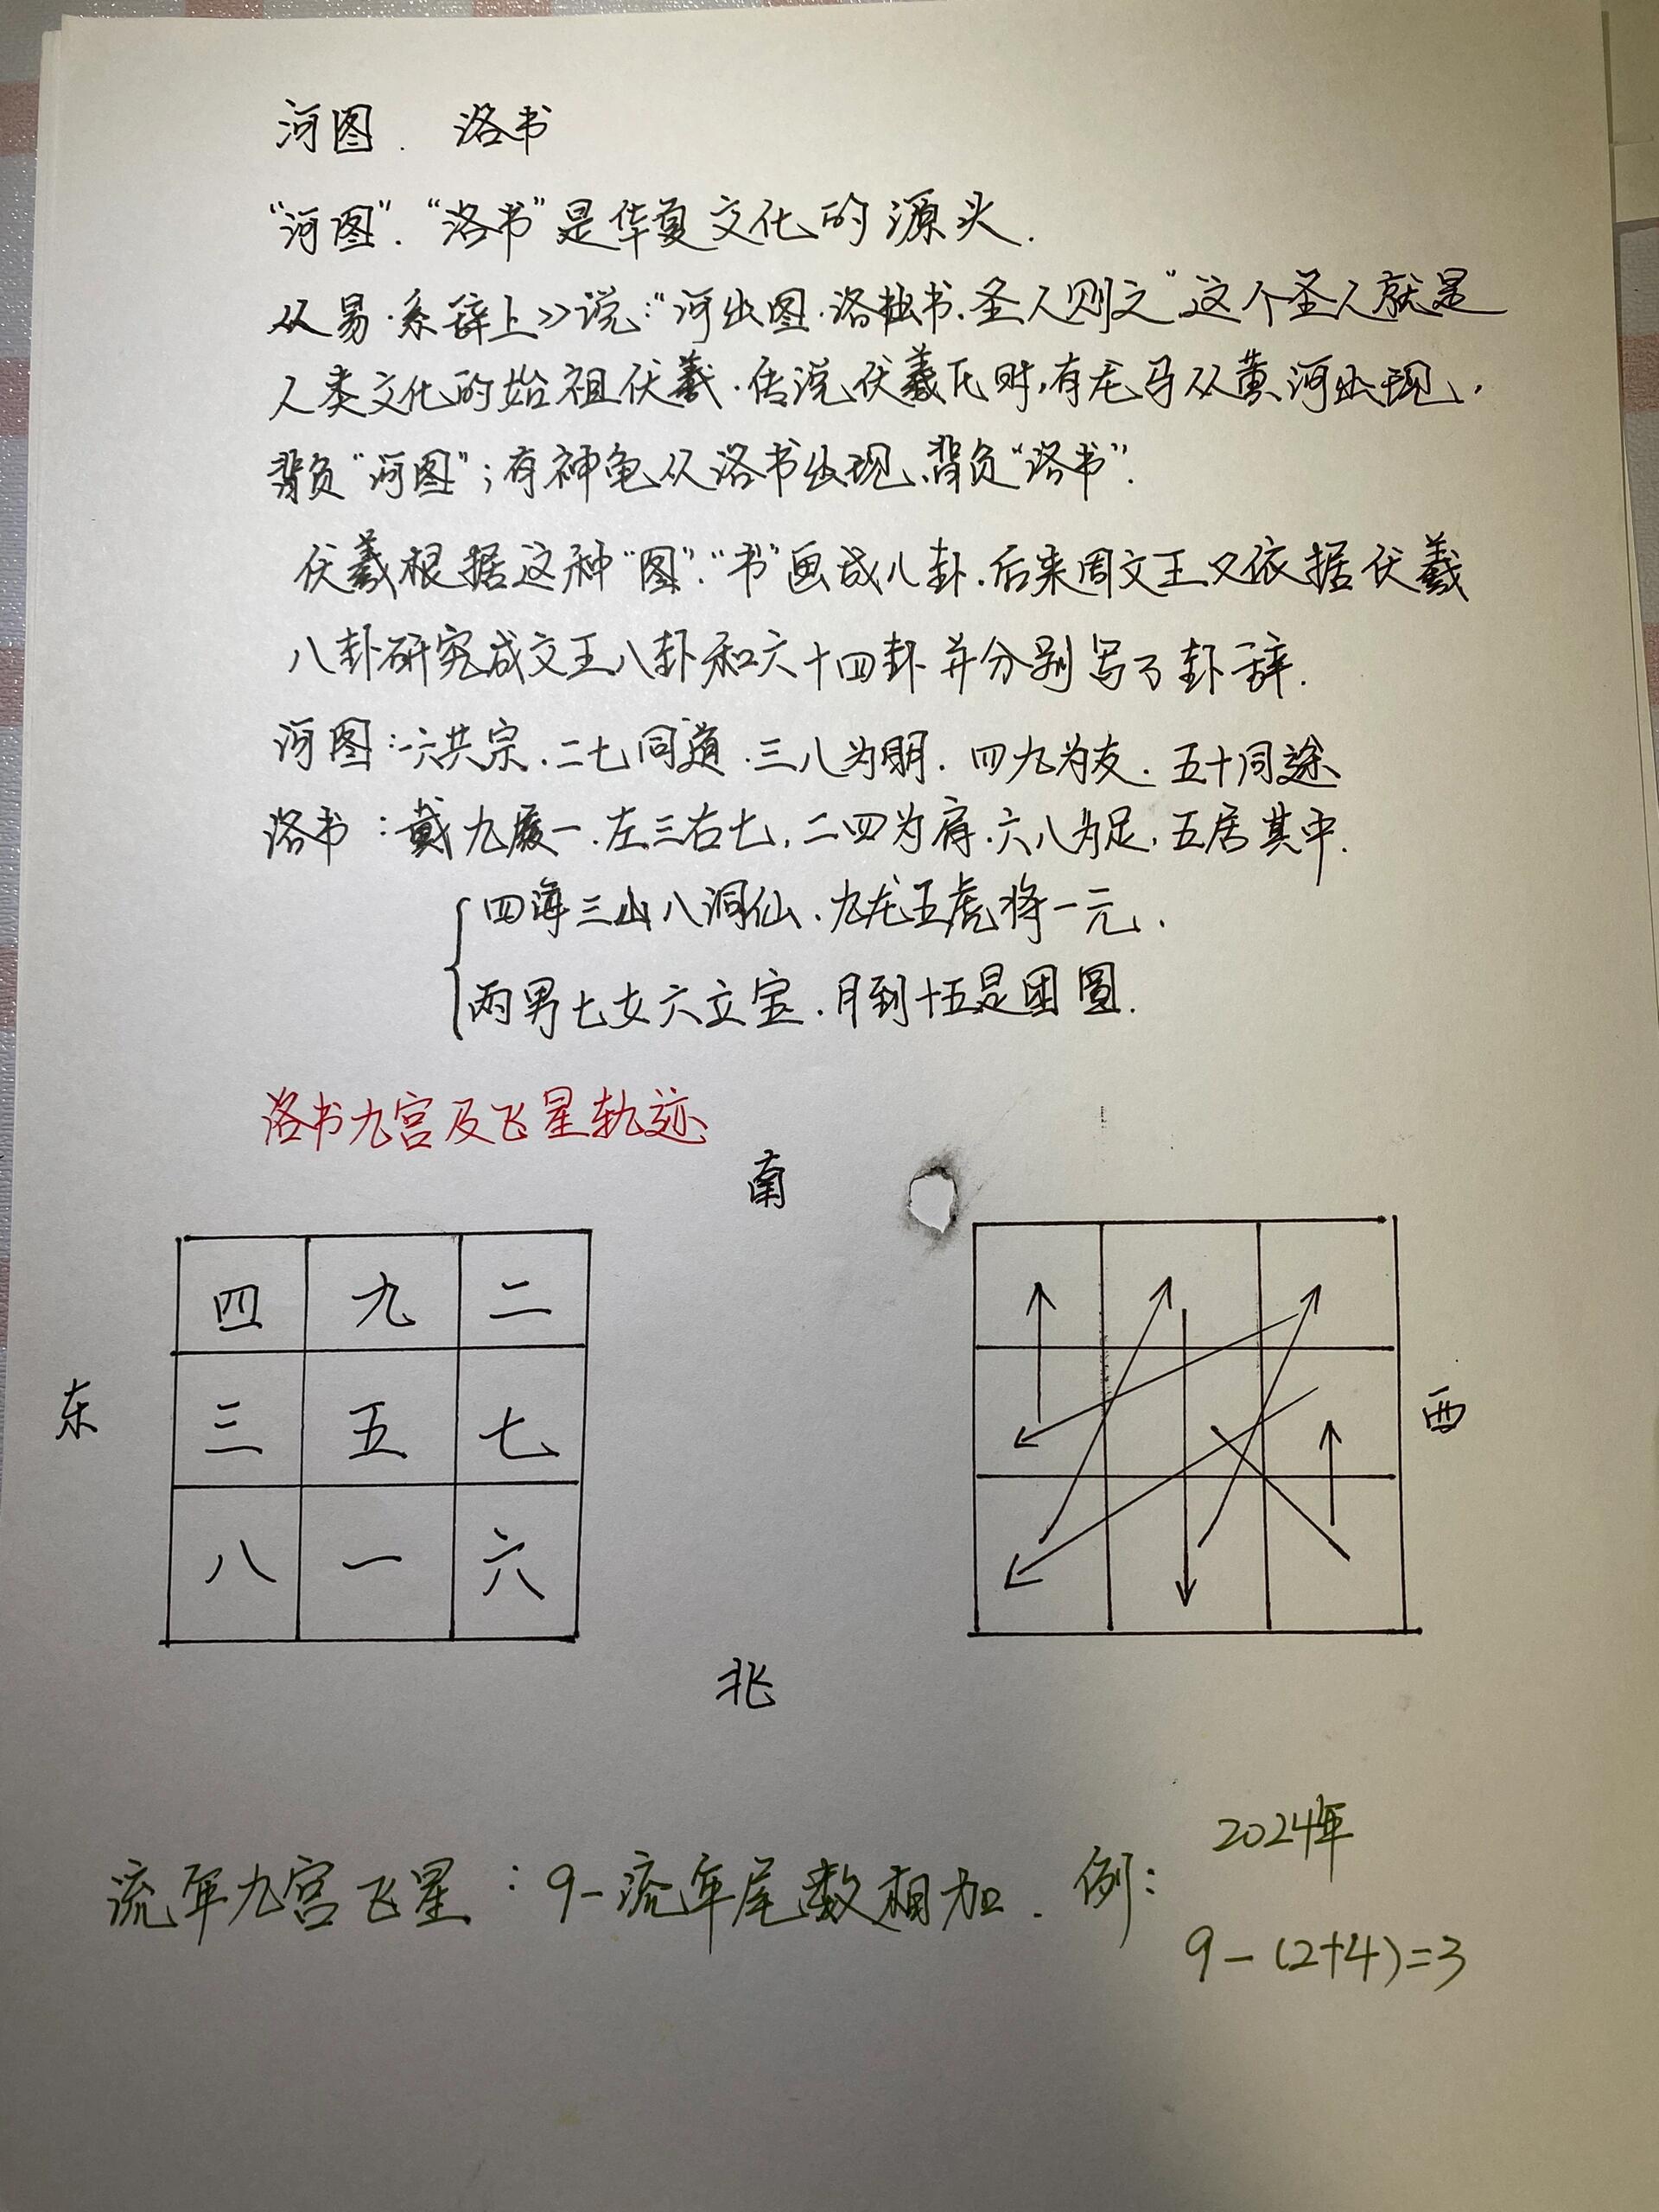 河图. 洛书
“河图”.“洛书”是华夏文化的源头.
从易·系辞上》说:“河出图.洛出书.圣人则之”这个圣人就是
人类文化的始祖伏羲.传说伏羲氏时,有龙马从黄河出现,
背负“河图”;有神龟从洛书出现、背负“洛书”.
伏羲根据这种“图”.“书”画成八卦.后来周文王又依据伏羲
八卦研究成文王八卦和六十四卦并分别写了卦辞.
河图:一六共宗.二七同道.三八为朋.四九为友.五十同途
洛书:戴九履一.左三右七,二四为肩.六八为足,五居其中.
四海三山八洞仙.九龙五虎将一元.
两男七女六立宝.月到十五是团圆.
洛书九宫及飞星轨迹
南
四 九 二
东 三 五 七 西
八 一 六
北
流年九宫飞星:9-流年尾数相加.例:
2024年
9-(2+4)=3